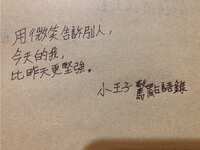 用微笑告訴別人,
今天的我,
比昨天更堅強。
小王子 驚點語錄